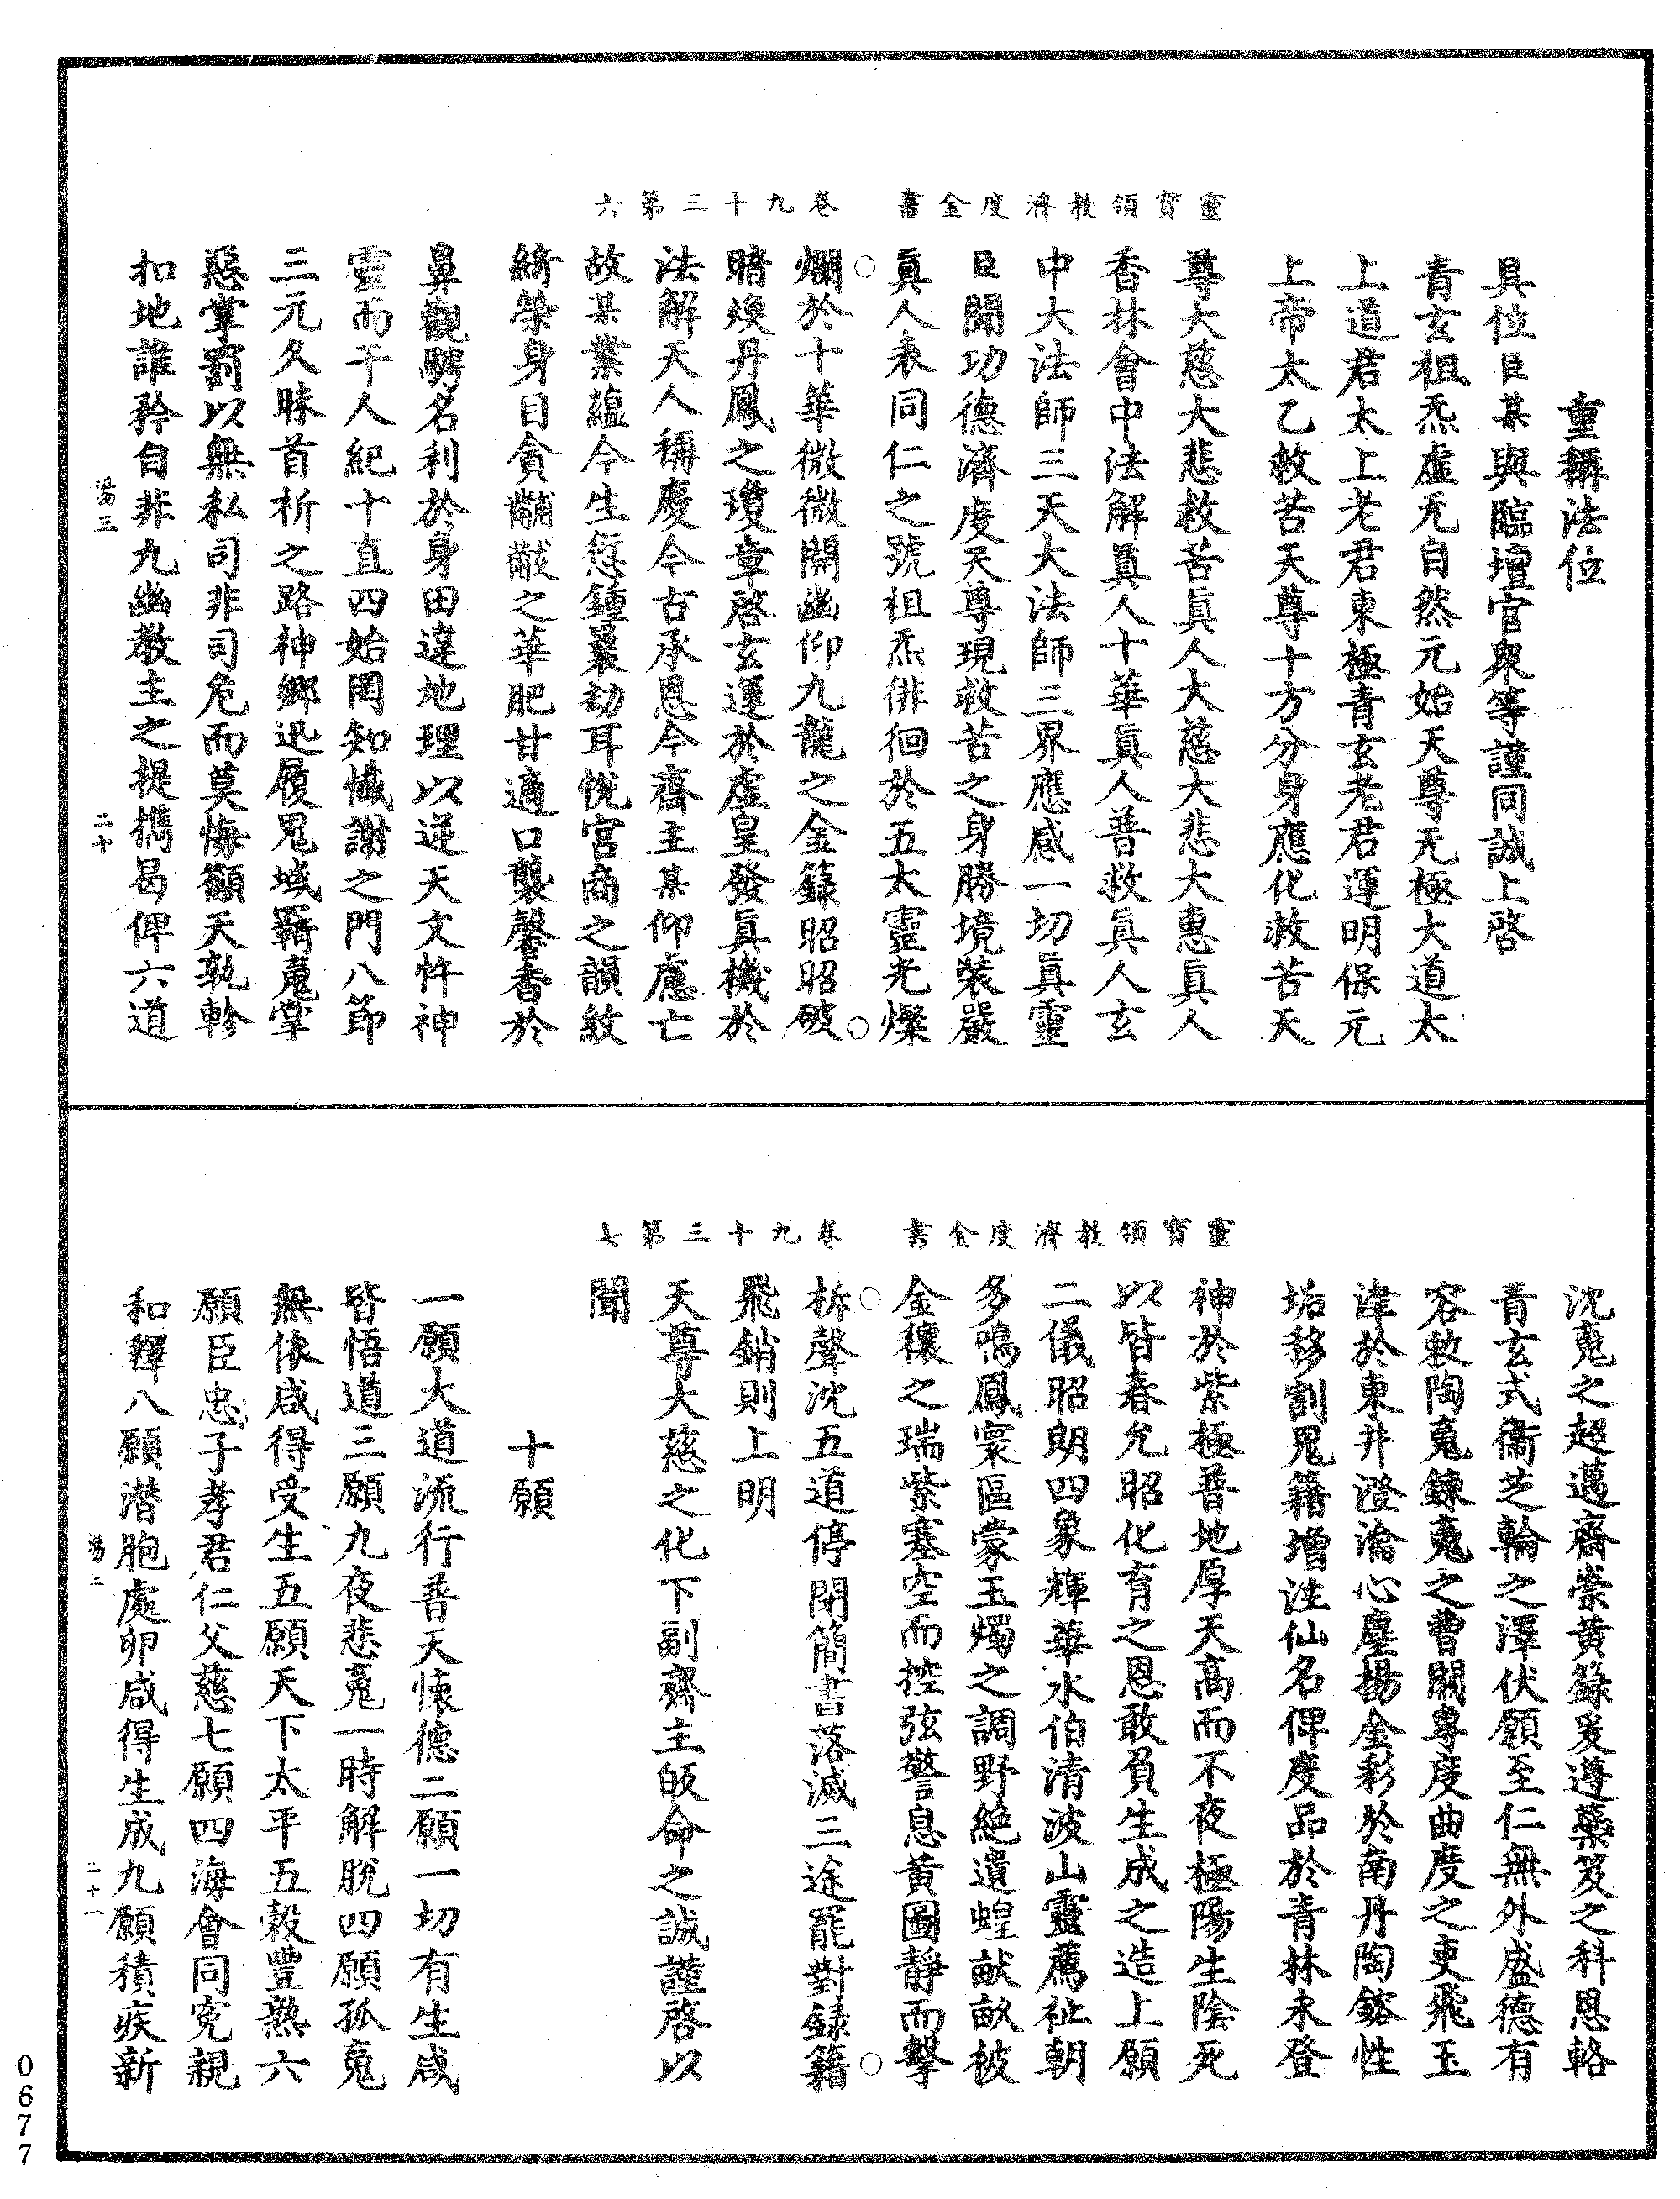 靈寳領教濟度金書　卷九十三第六
重稱法位
具位臣某與臨壇官衆等謹同誠上啓
青玄祖炁虛无自然元始天尊无極大道太
上道君太上老君東極青玄老君運明保元
上帝太乙救苦天尊十方分身應化救苦天
尊大慈大悲救苦眞人大慈大悲大惠眞人
香林會中法解眞人十華眞人普救眞人玄
中大法師三天大法師三界應感一切眞靈
臣聞功德濟度天尊現救苦之身勝境裝嚴
眞人表同仁之號祖炁徘徊於五太靈光燦
爛於十華微微開幽仰九龍之金籙昭昭破
暗煥丹鳳之瓊章啓玄運於虛皇發眞機於
法解天人稱慶今古承恩今齋主某仰慮亡
故某業蘊今生愆鍾曩劫耳悅宮商之韻紋
綺榮身目貪黼黻之華肥甘適口襲馨香於
鼻觀騁名利於身田違地理以逆天文忤神
靈而干人紀十直四始罔知懺謝之門八節
三元久昧首析之路神鄉迅履鬼域羈䰟掌
惡掌罰以無私司非司危而莫悔籲天孰軫
扣地誰矜自非九幽教主之提攜曷俾六道
湯三　二十
靈寳領教濟度金書　卷九十三第七
沈䰟之超邁齋崇黃籙爰遵蘂笈之科恩輅
青玄式衞芝輪之澤伏願至仁無外盛德有
容敕陶䰟鍊䰟之曹關專度曲度之吏飛玉
津於東井澄瀹心塵揚金彩於南丹陶鎔性
垢移割鬼籍增注仙名俾度品於青林未登
神於紫極普地厚天高而不夜極陽生陰死
以皆春允昭化育之恩敢負生成之造上願
二儀昭朗四象輝華水伯清波山靈薦祉朝
多鳴鳳寰區蒙玉燭之調野絕遺蝗畎畝被
金穰之瑞紫塞空而控弦警息黃圖靜而擊
柝聲沈五道停閉簡書落滅三途罷對録籍
飛銷則上明
天尊大慈之化下副齋主皈命之誠謹啓以
聞
十願
一願大道流行普天懷德二願一切有生咸
皆悟道三願九夜悲䰟一時解脫四願孤䰟
無依咸得受生五願天下太平五穀豐熟六
願臣忠子孝君仁父慈七願四海會同寃親
和釋八願濳胞處卵咸得生成九願積疾新
湯三　二十一
0677